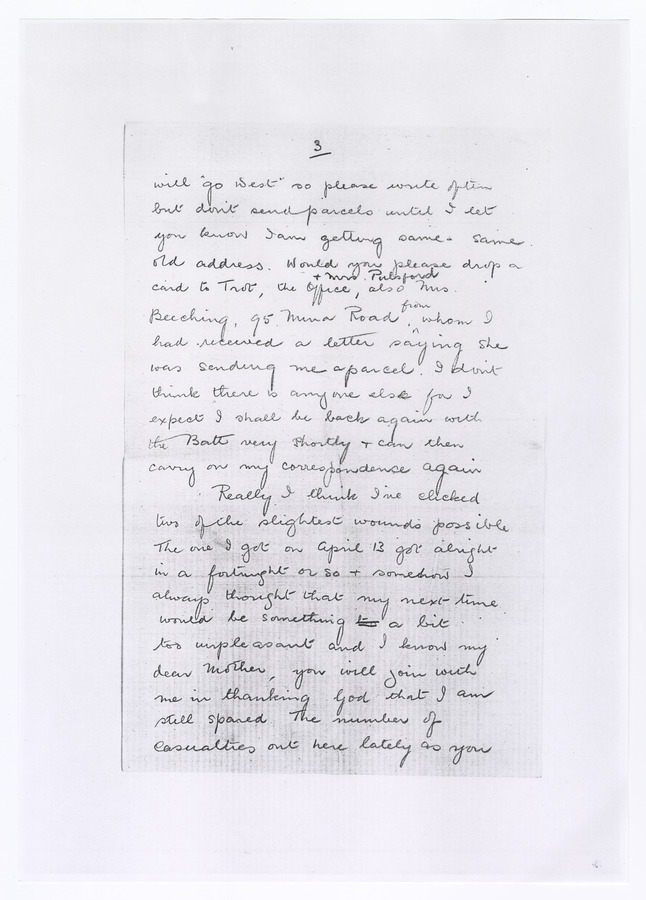 3
will "go West" so please write often
but don't send parcels until I let
you know I am getting same. Same
old address. Would you please drop a
+ Mrs. Pulsford
card to Trot, the Office, also Mrs.
from
Beeching, 95 Mina Road, whom I
had received a letter saying she
was sending me a parcel. I don't
think there is anyone else for I
expect I shall be back again with
the Batt very shortly + can then
carry on my correspondence again
Really I think I've clicked
two of the slightest wounds possible
The one I got on April 13 got alright
in a fortnight or so + somehow I
always thought that my next time
would be something a bit
too unpleasant and I know my
dear Mother, you will join with
me in thanking God that I am
still spared. The number of
casualties out here lately as you